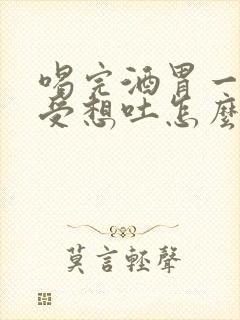 喝完酒胃一
受想吐怎麼
莫言輕聲